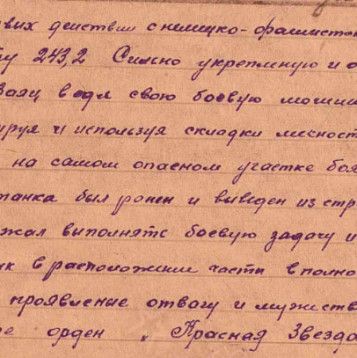 вых действии с немецко-фашистс
ту 243,2 Сильно укрепленую и о
Заяц ведя свою боевую машин
ируя и используя складки месност
на самом опасном участке боя
танка был ранен и выведен из стр
жал выполнять боевую задачу и
ик в расположении части в полно
проявленые отвагу и мужеств
орден „Красная Звезда